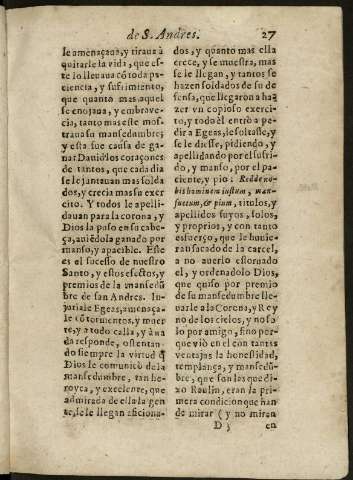 de S. Andres. 27
le amenaçaua, y tiraua à
quitarle la vida, que es-
te lo lleuaua cō toda pa-
ciencia, y sufrimiento,
que quanto mas aquel
se enojaua, y embraue-
cia, tanto mas este mos-
traua su mansedumbre;
y esta fue causa de ga-
nar Dauid los coraçones
de tantos, que cada dia
se le jantauan mas solda
dos, y crecia mas su exer
cito. Y todos le apelli-
dauan para la corona, y
Dios la puso en su cabe-
ça, auiēdola ganado por
manso, y apacible. Este
es el sucesso de nuestro
Santo, y estos efectos, y
premios de la mansedū
bre de san Andres. In-
juriale Egeas, amenaça-
le cō tormentos, y muer
te, y à todo calla, y à na
da responde, ostentan-
do siempre la virtud q̄
Dios le comunicò de la
mansedumbre, tan he-
royca, y excelente, que
admirada de ella la gen
te, se le llegan aficiona-
dos, y quanto mas ella
crece, y se muestra, mas
se le llegan, y tantos se
hazen soldados de su de
fensa, que llegaron a ha-
zer vn copioso exerci-
to, y todo èl entrò a pe-
dir a Egeas, le soltasse, y
se le diesse, pidiendo, y
apellidando por el sufri-
do, y manso, por el pa-
ciente, y pio: Redde no-
bis hominem iustum, man-
suetum, & pium, titulos, y
apellidos suyos, solos,
y proprios, y con tanto
esfuerço, que le huuie-
ran sacado de la carcel,
a no auerlo estoruado
el, y ordenadolo Dios,
que quiso por premio
de su mansedumbre lle-
uarle a la Corona, y Rey
no de los cielos, y no so
lo por amigo, sino por-
que viò en èl con tantas
ventajas la honestidad,
templança, y mansedū-
bre, que son las que di-
xo Raulin, eran la pri-
mera condicion que han
de mirar (y no miran
D 3 en